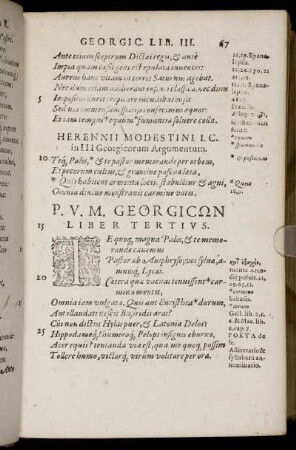 GEORGIC. LIB. III. 67
Ante etiam sceptrum Dictæi regis, & antè
Impia quàm cæsis gens est epulata iuuencis:
Aureus hanc vitam in terris Saturnus agebat.
Necdum etiam audierant inflari classica, necdum
5 Impositos duris crepitare incudibus enses.
Sed nos immensum spatijs confecimus æquor:
Et iam tempus equûm fumantia soluere colla.
HERENNII MODESTINI I.C.
in III Georgicorum Argumentum.
10 Teq́, Pales, * & te pastor memorande per orbem,
Et pecorum cultus, & gramine pascua læta,
* Quis habitent armenta locis, stabulisue & agni,
Omnia diuino monstrauit carmine vates.
P. V. M. GEORGICΩN
15 LIBER TERTIVS.
TE quoq, magna Pales, & te memorande
canemus
Pastor ab Amphryso: vos syluæ,
amnesq́, Lycæi.
20 Cætera quæ vacuas tenuissent *
carmina mentes,
Omnia iam vulgata. Quis aut Eurysthea * durum,
Aut illaudati nescit Busiridis aras?
Cui non dictus Hylas puer, & Latonia Delos?
25 Hippodameq́, humeroq́, Pelops insignis eburno,
Acer equis? tentanda via est, qua me quoq, possim
Tollere humo, victorq́, virûm volitare per ora.
* Quæue
* carmine
POETA